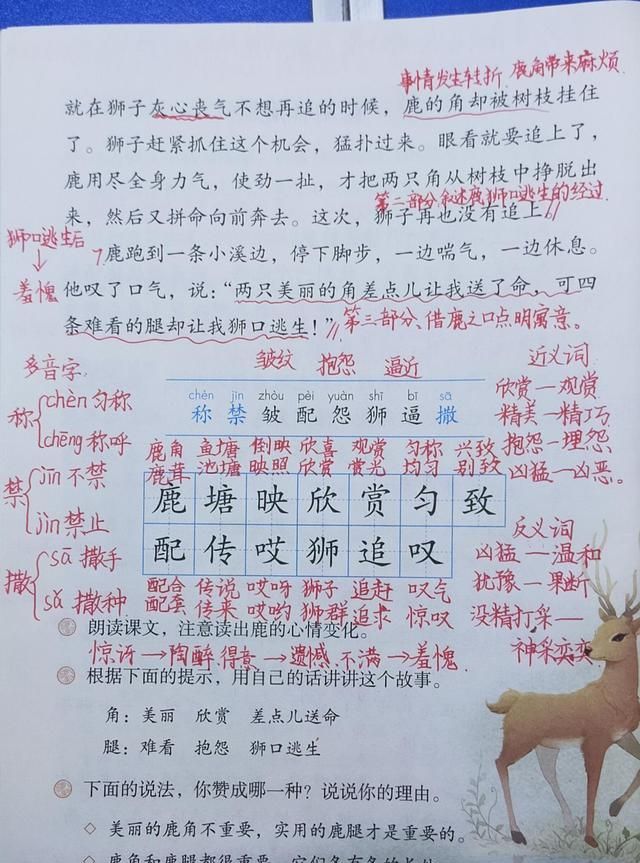 事情发生转折 鹿角带来麻烦
就在狮子灰心丧气不想再追的时候，鹿的角却被树枝挂住
了。狮子赶紧抓住这个机会，猛扑过来。眼看就要追上了，
鹿用尽全身力气，使劲一扯，才把两只角从树枝中挣脱出
第二部分叙述鹿狮口逃生的经过
来，然后又拼命向前奔去。这次，狮子再也没有追上。//
狮口逃生后
7 鹿跑到一条小溪边，停下脚步，一边喘气，一边休息。
羞愧
他叹了口气，说：“两只美丽的角差点儿让我送了命，可四
条难看的腿却让我狮口逃生！”//第三部分、借鹿之口点明寓意。
多音字
皱纹 抱怨 逼近
近义词
chèn jìn zhòu pèi yuàn shī bī sā
称 禁 皱 配 怨 狮 逼 撒
称 chèn 匀称
chēng 称呼
禁 jīn 不禁
jìn 禁止
撒 sā 撒手
sǎ 撒种
欣赏—观赏
精美—精巧
抱怨—埋怨
凶猛—凶恶。
鹿角 鱼塘 倒映 欣喜 观赏 匀称 兴致
鹿茸 池塘 映照 欣赏 赏光 均匀 别致
鹿 塘 映 欣 赏 匀 致
配 传 哎 狮 追 叹
配合 传说 哎呀 狮子 追赶 叹气
配套 传来 哎哟 狮群 追求 惊叹
反义词
凶猛—温和
犹豫—果断
没精打采—
神采奕奕
朗读课文，注意读出鹿的心情变化。
惊讶→陶醉、得意→遗憾、不满→羞愧
根据下面的提示，用自己的话讲讲这个故事。
角：美丽 欣赏 差点儿送命
腿：难看 抱怨 狮口逃生
下面的说法，你赞成哪一种？说说你的理由。
◇ 美丽的鹿角不重要，实用的鹿腿才是重要的。
◇ 鹿角和鹿腿都很重要，它们各有各的长处